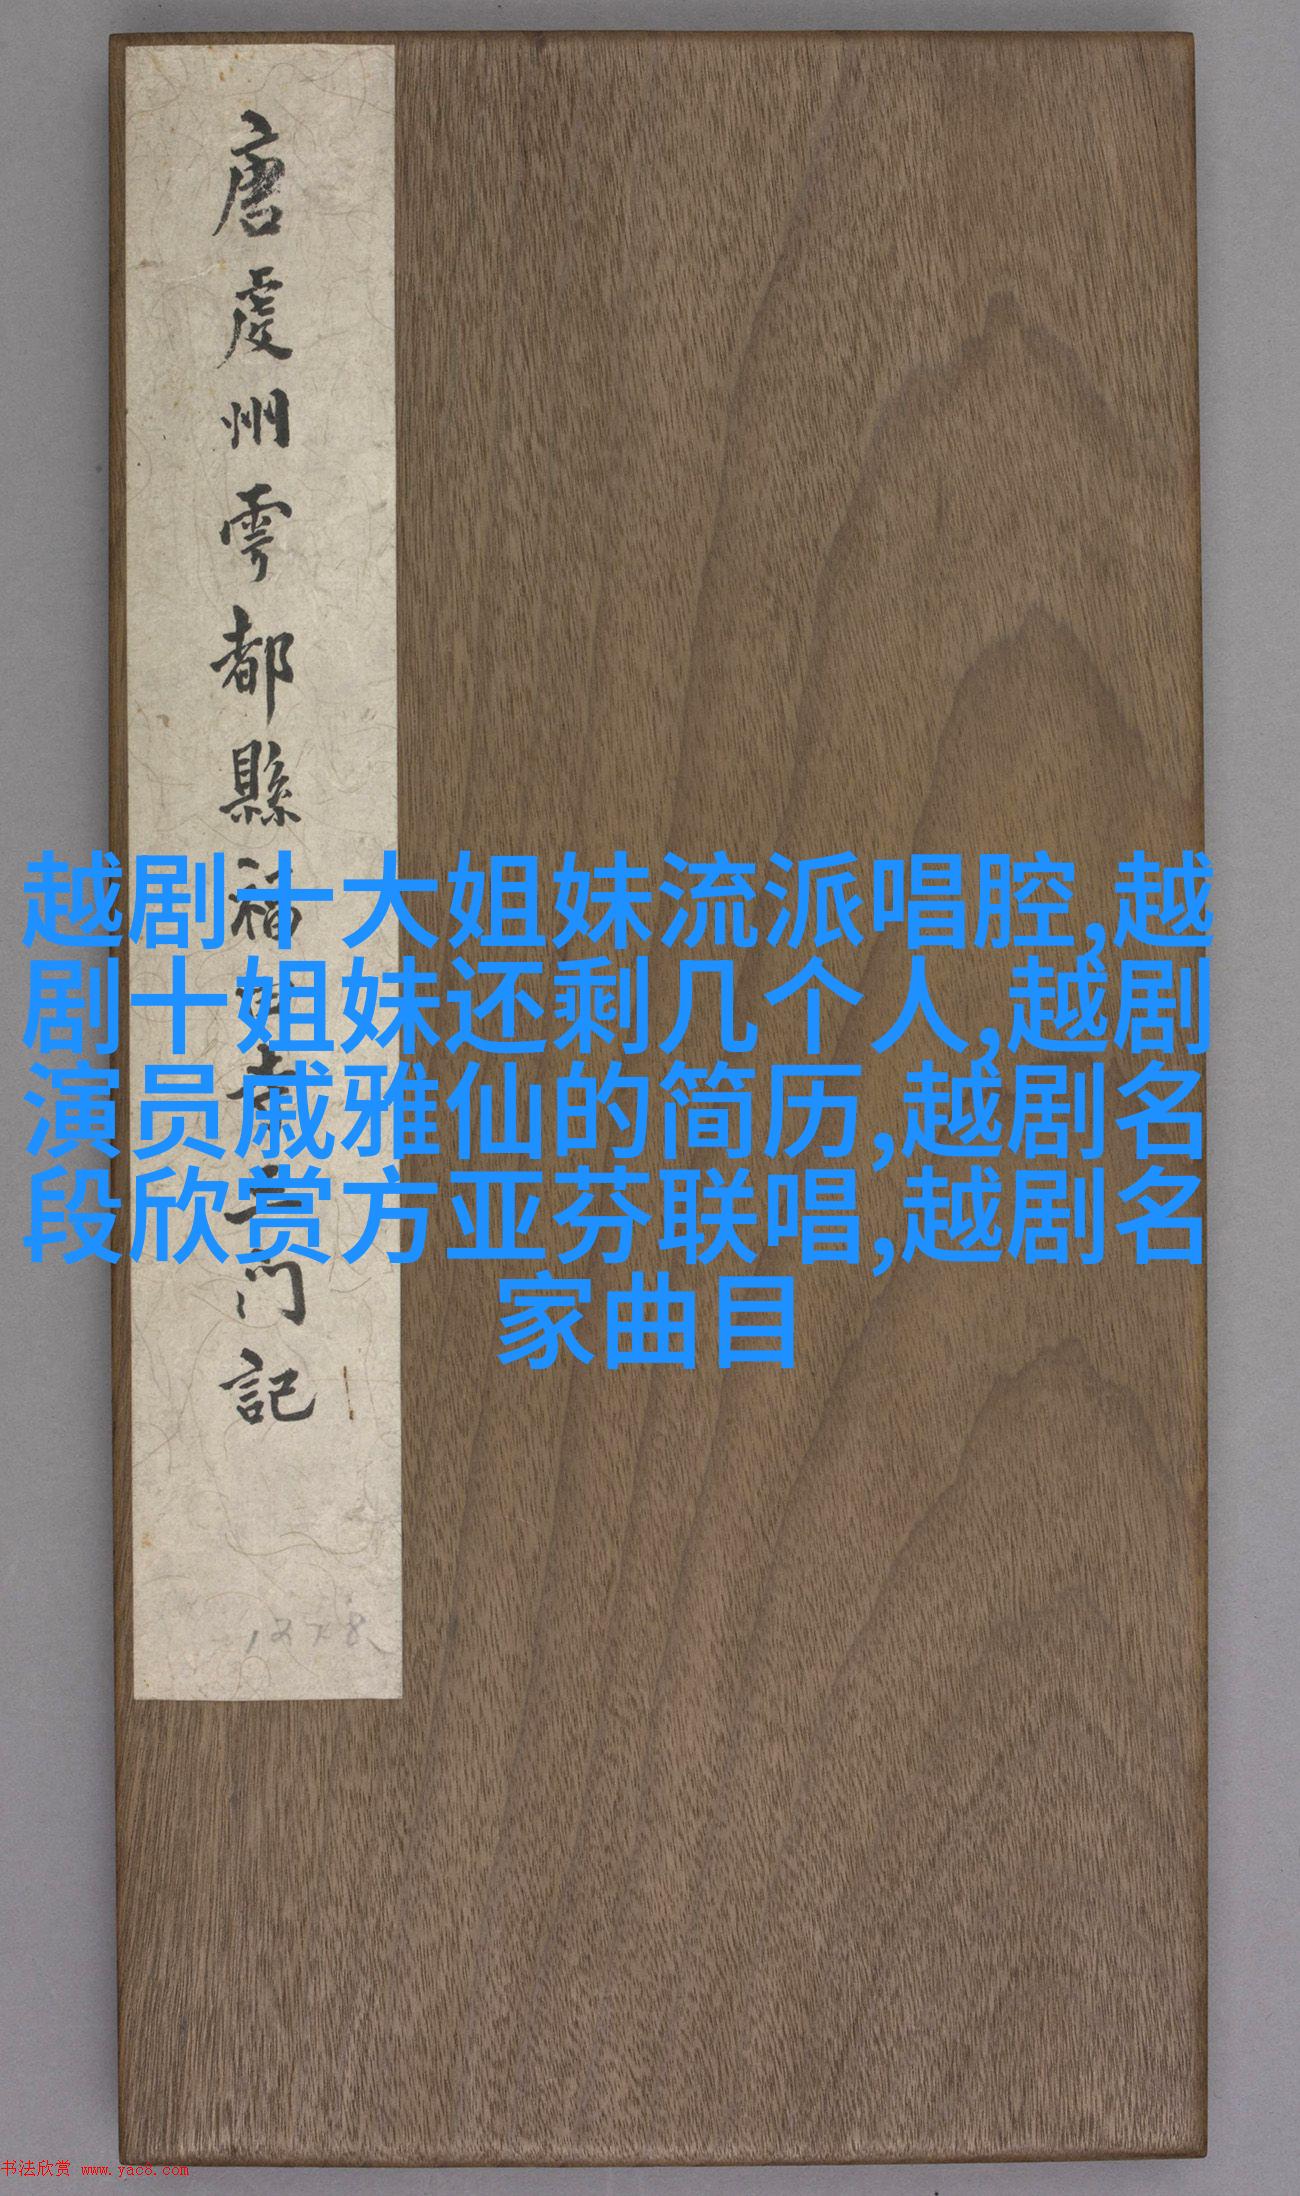 唐虔州雩都縣福寺門記
越剧十大姐妹流派唱腔,越
剧十姐妹还剩几个人,越剧
演员戚雅仙的简历,越剧名
段欣赏方亚芬联唱,越剧名
家曲目
书法欣赏 www.yac8.com